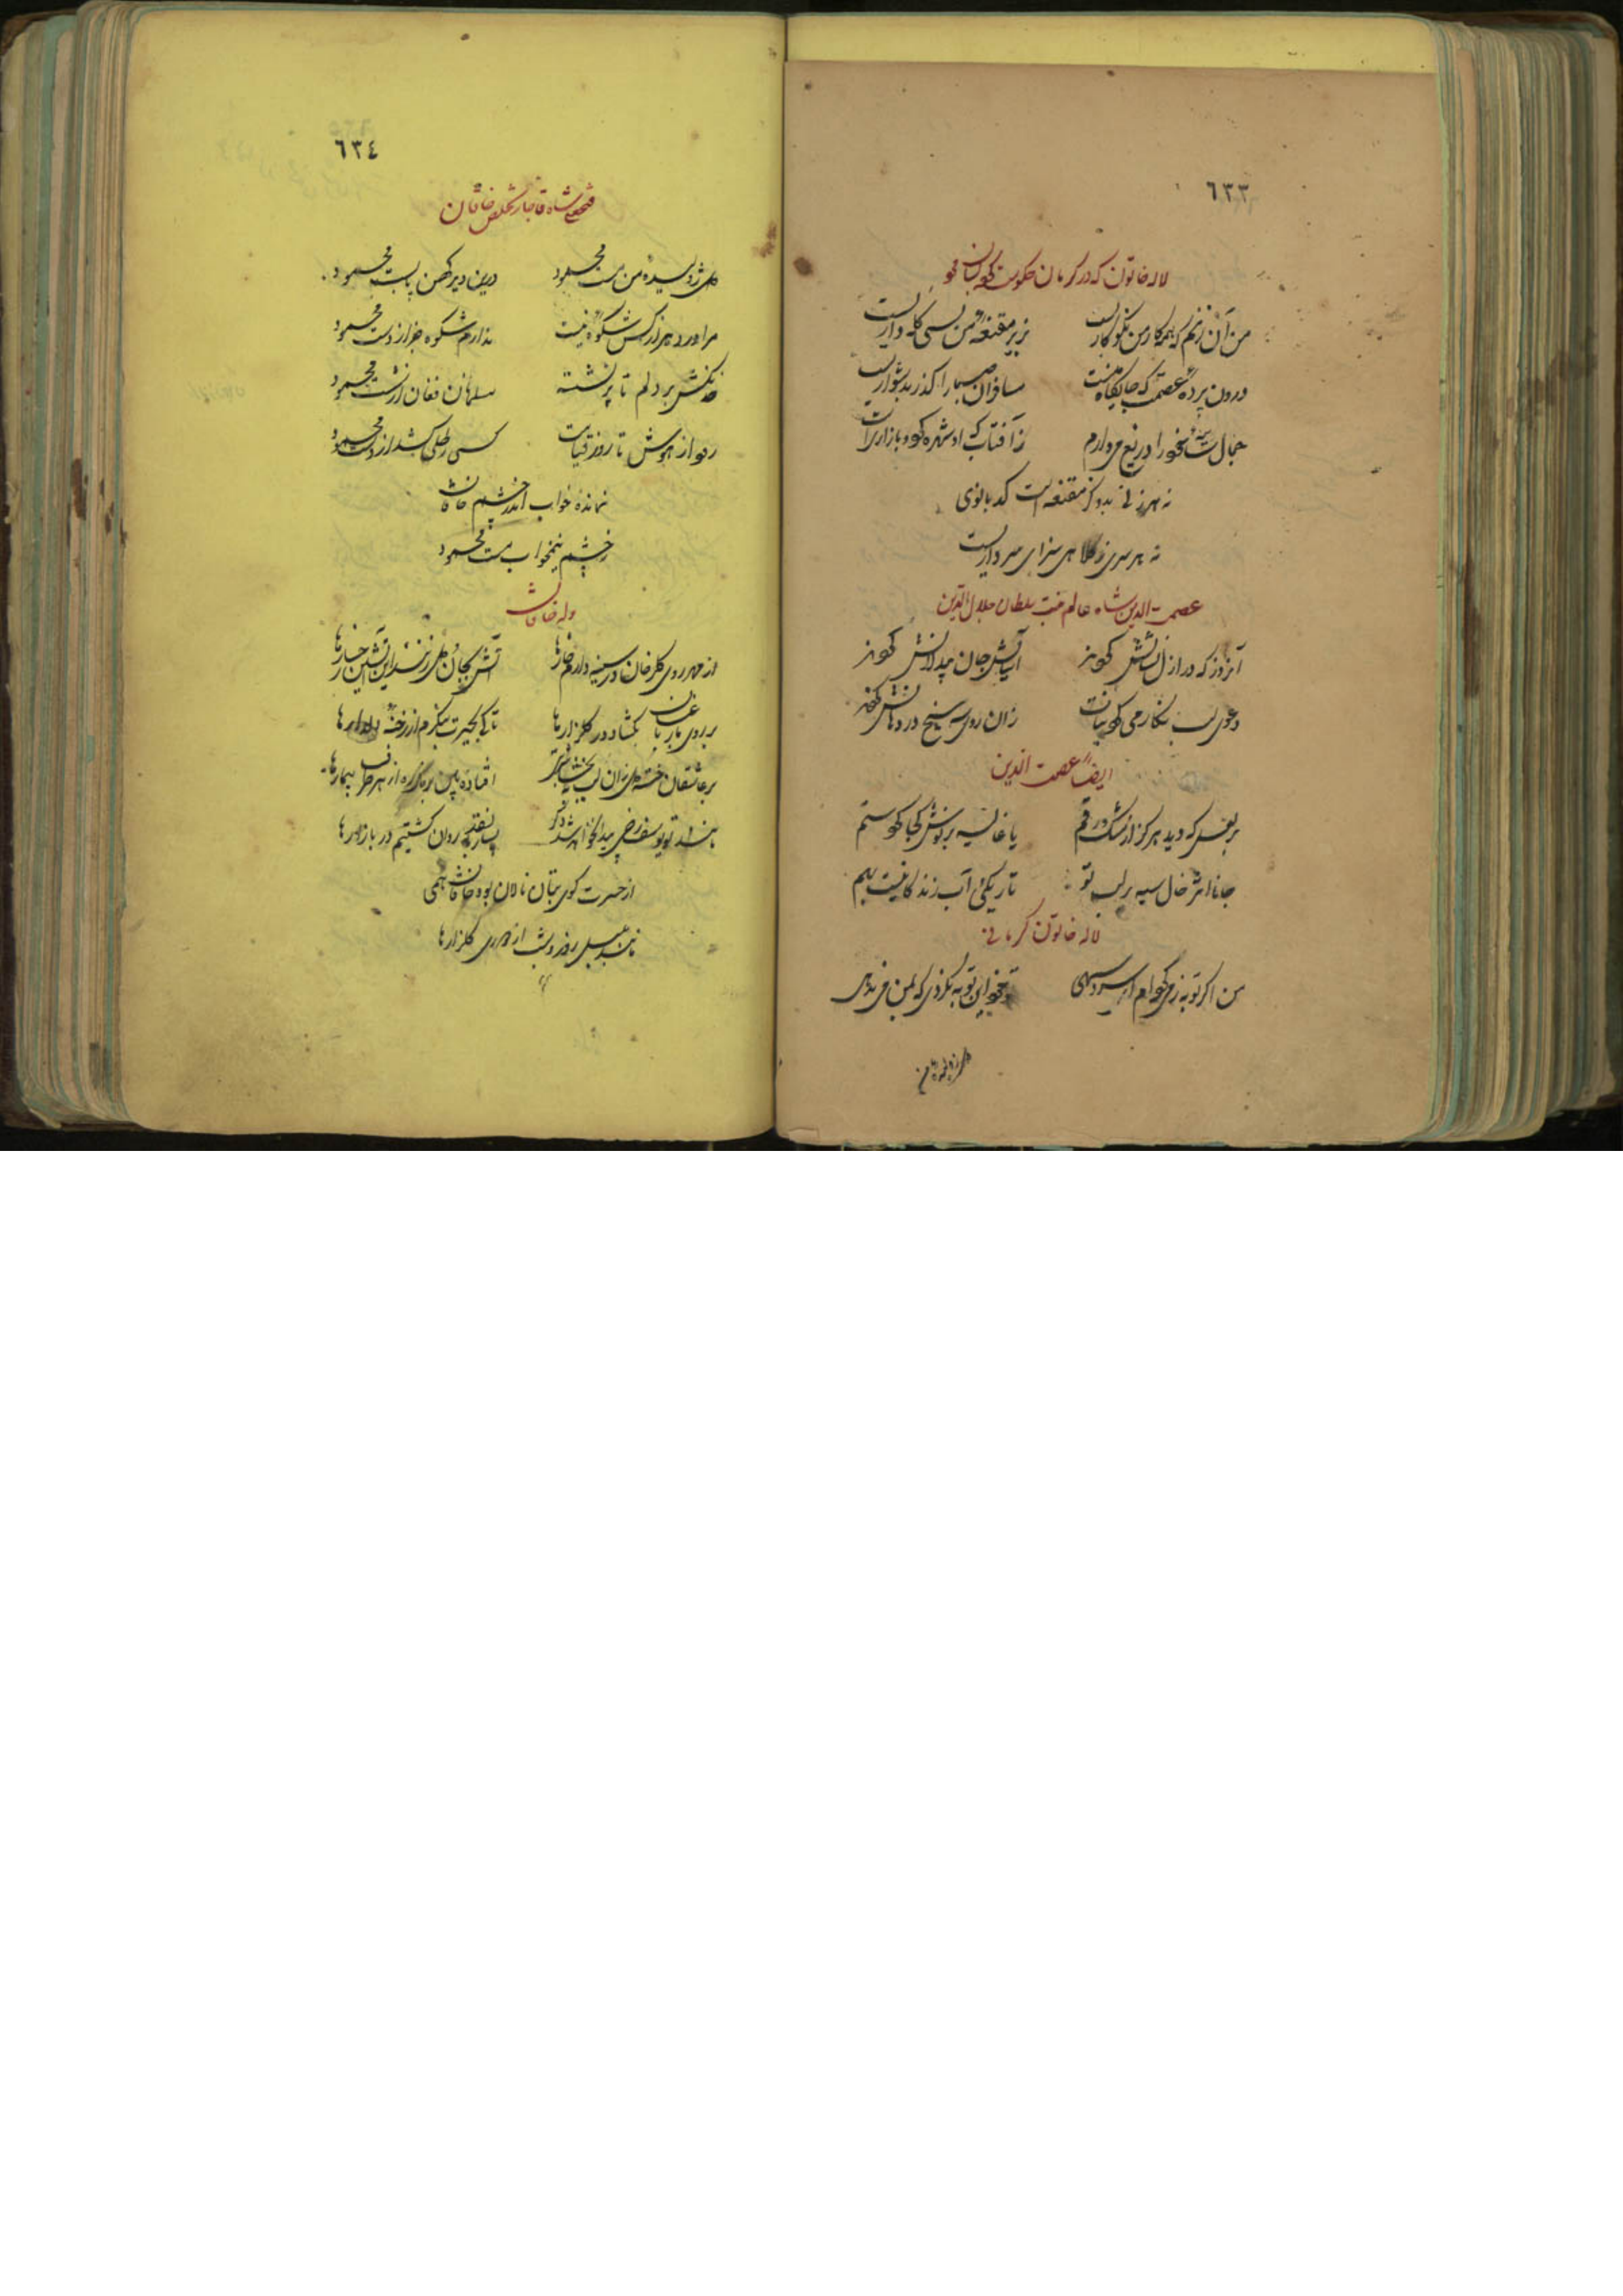 ٦٣٣
لاله خاتون که در کرمان حکومت
من آن زنم که همه کار من نکو کاریست
بزیر مقنعه من بسی کله داریست
درون پرده عصمت که جایگاه منست
مسافران صبا را گذر بدشواریست
جمال سایه خود را دریغ میدارم
ز آفتاب که او شهره کو و بازاریست
نه هر زنی بدو گز مقنعه است کدبانوی
نه هر سری ز کلاهی سزای سرداریست
عصمت الدین شاه عالم بنت سلطان جلال الدین
آنروز که در ازل نشانش کردند
آسایش جان بیدلانش کردند
دعوی لب نگار می کرد نبات
زان روی سه سیخ در دهانش کردند
ایضاً عصمت الدین
بر لعل که دید هرگز از مشک رقم
یا غالیه بر نوش کجا کرد ستم
جانا اثر خال سیه بر لب تو
تاریکی آب زندگانیست بهم
لاله خاتون کرمانی
من اگر توبه ز می کرده ام ای سرو سهی
تو خود این توبه نکردی که بمن می ندهی
٦٣٤
فتحعلی شاه قاجار تخلص خاقان
گل ژولیده من مست محمود
درین دیر کهن پابست محمود
مرا درد هر از کس شکوه نیست
ندارم شکوه جز از دست محمود
خدنگش بر دلم تا پر نشسته
مسلمانان فغان از شست محمود
رود از هوش تا روز قیامت
کسی رطلی کشد از دست محمود
نمانده خواب اندر چشم خاقان
ز چشم نیمخواب مست محمود
وله خاقان
از مهر روی گلرخان در سینه دارم خارها
آتش بجان دل زنند این آتشین رخسارها
بر روی ما یا باغبان بگشا در گلزارها
تا کی بحیرت بنگرم از رخنه دیوارها
بر عاشقان خسته دل زان لب ببخشا شربتی
افتاده بین بر رهگذر از هر طرف بیمارها
مانند تو یوسف رخی پیدا نخواهد شد دگر
بسیار نقد جان روان گشتیم در بازارها
از حسرت کوی بتان نالان بود خاقان همی
مانند بلبل روز و شب از دوری گلزارها